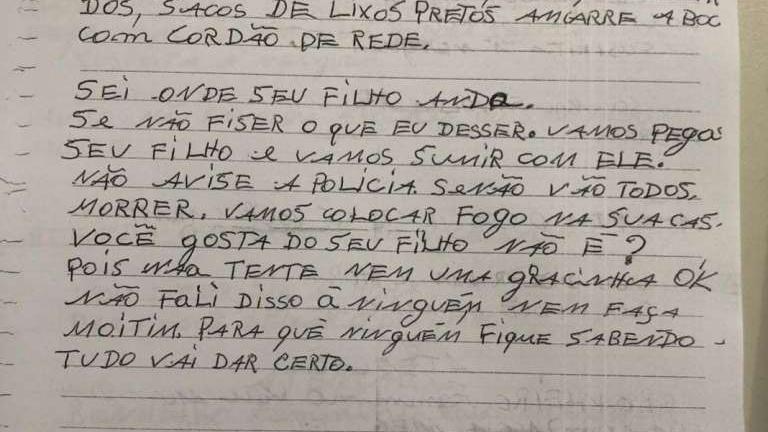 DOS, SACOS DE LIXOS PRETOS AMGARRE A BOC
COM CORDÃO DE REDE.
SEI ONDE SEU FILHO ANDA.
SE NÃO FISER O QUE EU DESSER. VAMOS PEGA
SEU FILHO E VAMOS SUMIR COM ELE.
NÃO AVISE A POLICIA SENÃO VÃO TODOS.
MORRER. VAMOS COLOCAR FOGO NA SUA CAS.
VOCÊ GOSTA DO SEU FILHO NÃO É?
POIS NÃO TENTE NEM UMA GRACINHA OK
NÃO FALI DISSO À NINGUÉM NEM FAÇA
MOITIM. PARA QUE NINGUÉM FIQUE SABENDO
TUDO VAI DAR CERTO.